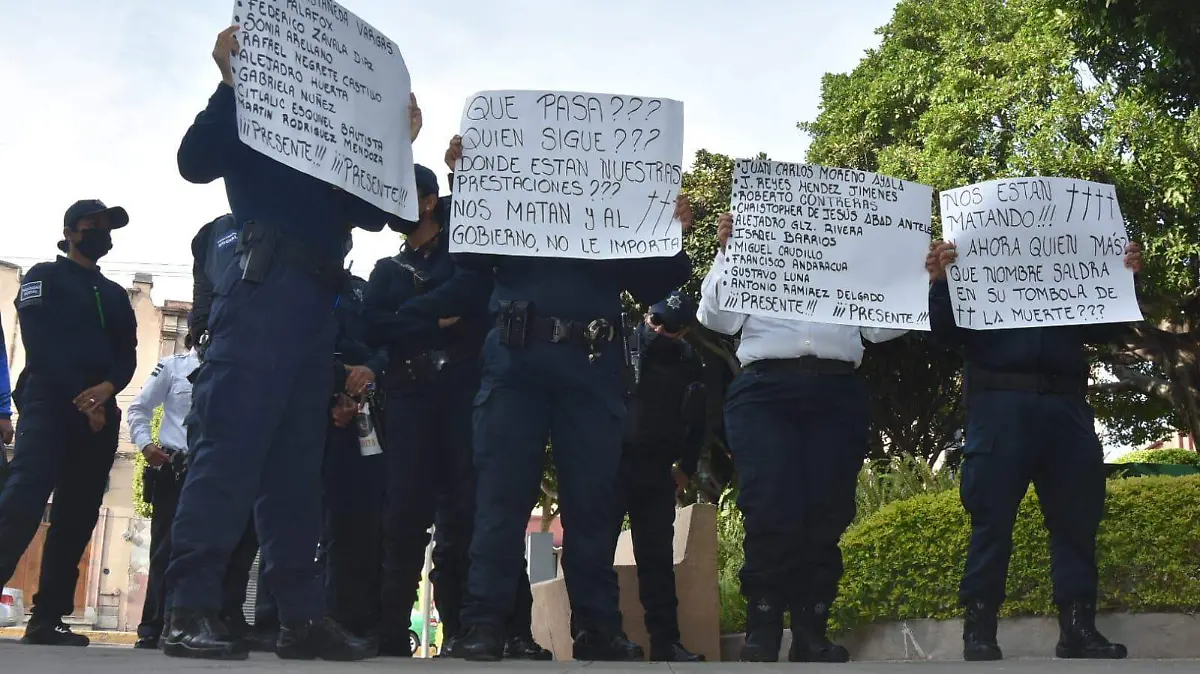 CASTAÑEDA VARGAS
PALAFOX
• FEDERICO ZAVALA DIAZ
• SONIA ARELLANO
• RAFAEL NEGRETE CASTILLO
• ALEJADRO HUERTA
• GABRIELA NUÑEZ
• CITLALIC ESQUINEL BAUTISTA
MARTIN RODRIGUEZ MENDOZA
¡¡¡PRESENTE!!! ¡¡¡PRESENTE!!!
QUE PASA???
QUIEN SIGUE???
DONDE ESTAN NUESTRAS
PRESTACIONES???
NOS MATAN Y AL
GOBIERNO, NO LE IMPORTA
• JUAN CARLOS MORENO AYALA
• J. REYES HENDEZ JIMENES
• ROBERTO CONTRERAS
• CHRISTOPHER DE JESÚS ABAD ANTELE
• ALEJADRO GLZ. RIVERA
• ISRAEL BARRIOS
• MIGUEL CAUDILLO
• FRANCISCO ANDARACUA
• GUSTAVO LUNA
• ANTONIO RAMIREZ DELGADO
¡¡¡PRESENTE!!! ¡¡¡PRESENTE!!!
NOS ESTAN
MATANDO!!! ††††
¿AHORA QUIEN MÁS?
QUE NOMBRE SALDRA
EN SU TOMBOLA DE
†† LA MUERTE???